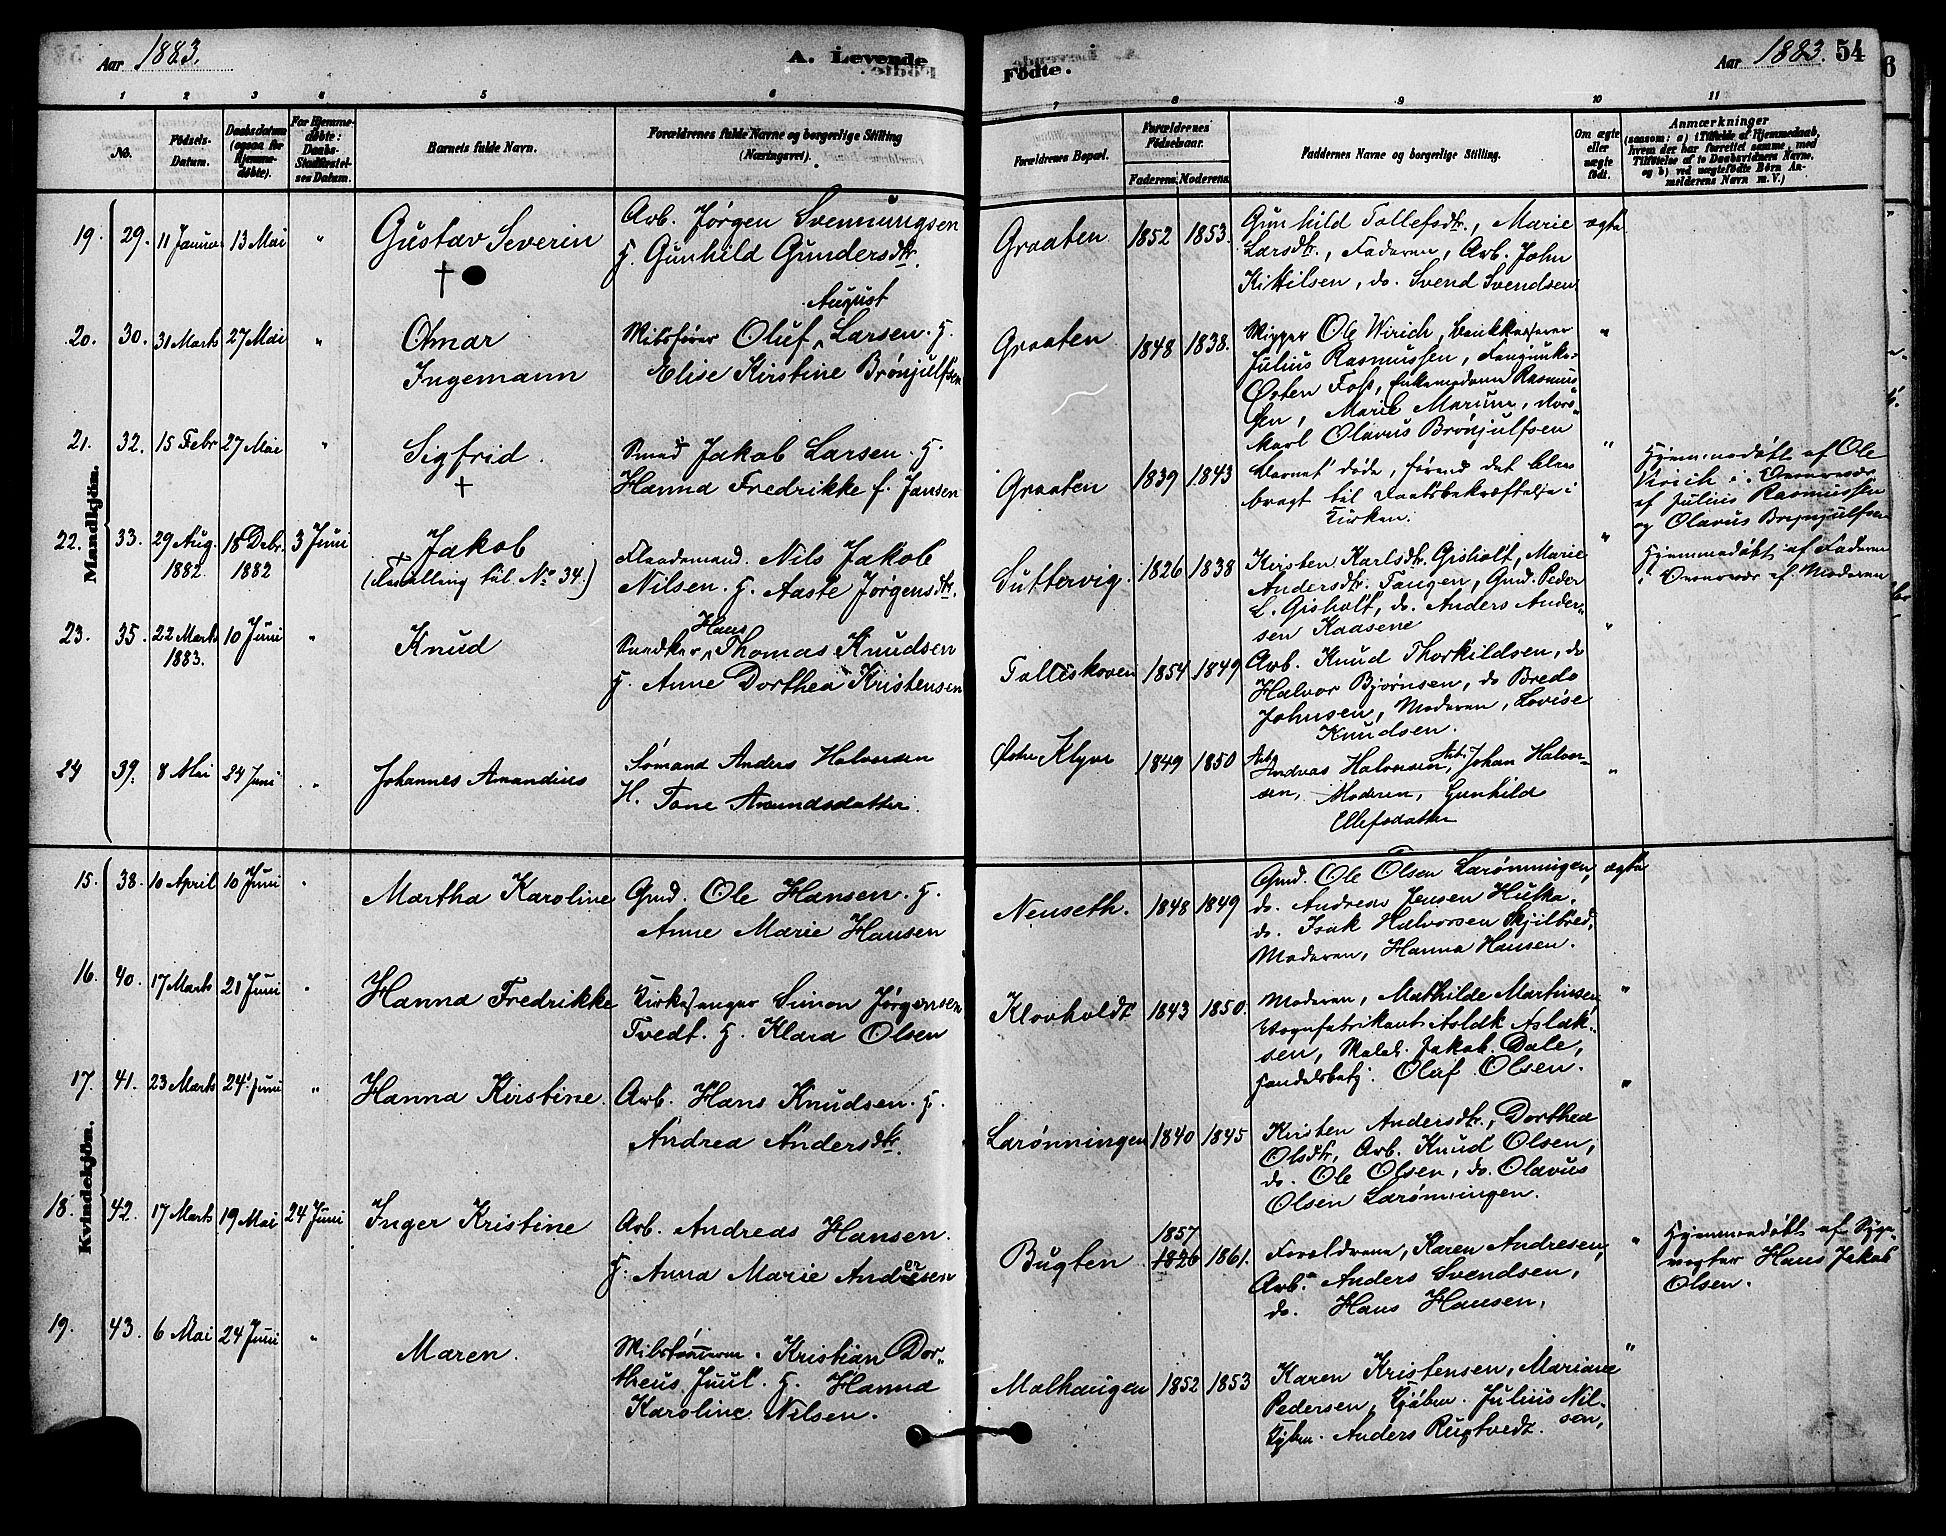 Aar 1883.
A. Levende
Fødte.
Aar 1883. 54
6
1 2 3 4 5 6 7 8 9 10 11
No.
Fødsels-
Datum.
Daabsdatum
(ogsaa for
Hjemme-
døbte).
For Hjemme-
døbte:
Daabs-
Stadfæstel-
ses Datum.
Barnets fulde Navn.
Forældrenes fulde Navne og borgerlige Stilling
(Næringsvei).
Forældrenes Bopæl.
Forældrenes
Fødselsaar.
Faderens. Moderens.
Faddernes Navne og borgerlige Stilling.
Om ægte
eller
uægte
født.
Anmærkninger
(saasom: a) i Tilfælde af Hjemmedaab,
hvem der har forrettet samme, med
Tilføielse af to Daabsvidners Navne,
og b) ved uægtefødte Børn An-
melderens Navn m. V.)
Mandkjön.
19. 29. 11 Januar 13 Mai "
Gustav Severin
†
Arb. Jørgen Svennungsen
H. Gunhild Gundersdtr.
Graaten 1852 1853.
Gunhild Tollefsdtr., Marie
Larsdtr., Faderen, Arb. John
Kittilsen, do. Svend Svendsen
ægte
20. 30. 31 Marts 27 Mai "
Otmar
Ingemann
August
Oluf Larsen. H.
Elise Kirstine Brønjulfsen
Graaten 1848 1838.
Skipper Ole Wirich,
Julius Rasmussen,
Østen Foss, Enkemadam Rasmus-
sen, Marie
Olavus Brønjulfsen
"
21. 32. 15 Febr 27 Mai "
Sigfrid.
†
Smed Jakob Larsen. H.
Hanna Fredrikke f. Jansen
Graaten 1839 1843
Barnet døde, førend det blev
bragt til Daabsbekræftelse i
Kirken.
"
Hjemmedøbt af Ole
Virich i Overvær
af Julius Rasmussen
og Olavus Brynjulfsen
22. 33. 29 Aug. 1882 18 Debr. 1882 3 Juni
† Jakob
(Tvilling til No 34.)
Nils Jakob
Nilsen. H. Aaste Jørgensdtr.
Suttervig. 1826 1838
Kirsten Karlsdtr. Gisholt, Marie
Andersdtr. Tangen, Gmd. Peder
L. Gisholt, do. Anders Ander-
sen Kaasene
"
Hjemmedøbt af Faderen
i Overvær af Moderen
23. 35. 22 Marts 1883. 10 Juni "
Knud
Hans
Snedker Thomas Knudsen
H. Anne Dorthea Kristensen
1854 1849
Arb. Knud Thorkildsen, do
Halvor Bjørnsen, do Bredo
Johnsen, Moderen, Lovise
Knudsen.
"
24 39. 8 Mai 24 Juni "
Johannes Amandius
Sømand Anders Halvorsen
H. Tone Amundsdatter
Østre Klyve 1849 1850
Arb. Andreas Halvorsen, Arb. Johan Halvor-
sen, Moderen, Gunhild
Ellefsdatter
"
Kvindekjön.
15. 38. 10 April 10 Juni "
Martha Karoline
Gmd. Ole Hansen. H.
Anne Marie Hansen
Nenseth. 1848 1849
Gmd. Ole Olsen Larønningen,
do. Andreas Jensen
do. Isak Halvorsen Skjilbred,
Moderen, Hanna Hansen.
ægte
16. 40. 17 Marts 21 Juni "
Hanna Fredrikke
Kirkesanger Simon Jørgensen
Tvedt. H. Klara Olsen
Klovholdt 1843 1850.
Moderen, Mathilde Martinsen,
Vognfabrikant Aslak Aslak-
sen, Jakob Dale,
Handelsbetj. Oluf Olsen.
"
17. 41. 23 Marts 24 Juni "
Hanna Kirstine.
Arb. Hans Knudsen. H.
Andrea Andersdtr.
Larønningen 1840 1845
Kirsten Andersdtr, Dorthea
Olsdtr, Arb. Knud Olsen,
do. Ole Olsen, do. Olavus
Olsen Larønningen.
"
18. 42. 17 Marts 19 Mai 24 Juni
Inger Kristine
Arb. Andreas Hansen.
H. Anna Marie Andersen
Bugten 1857 1826 1861.
Forældrene, Karen Andresen,
Arb. Anders Svendsen,
do. Hans Hansen,
"
Hjemmedøbt af
Hans Jakob
Olsen.
19. 43. 6 Mai 24 Juni "
Maren.
Kristian Dor-
theus Juul. H. Hanna
Karoline Nilsen.
Malhaugen 1852 1853
Karen Kristensen, Mariane
Pedersen, Kjøbm. Julius Nil-
sen,
Anders Rugtvedt.
"